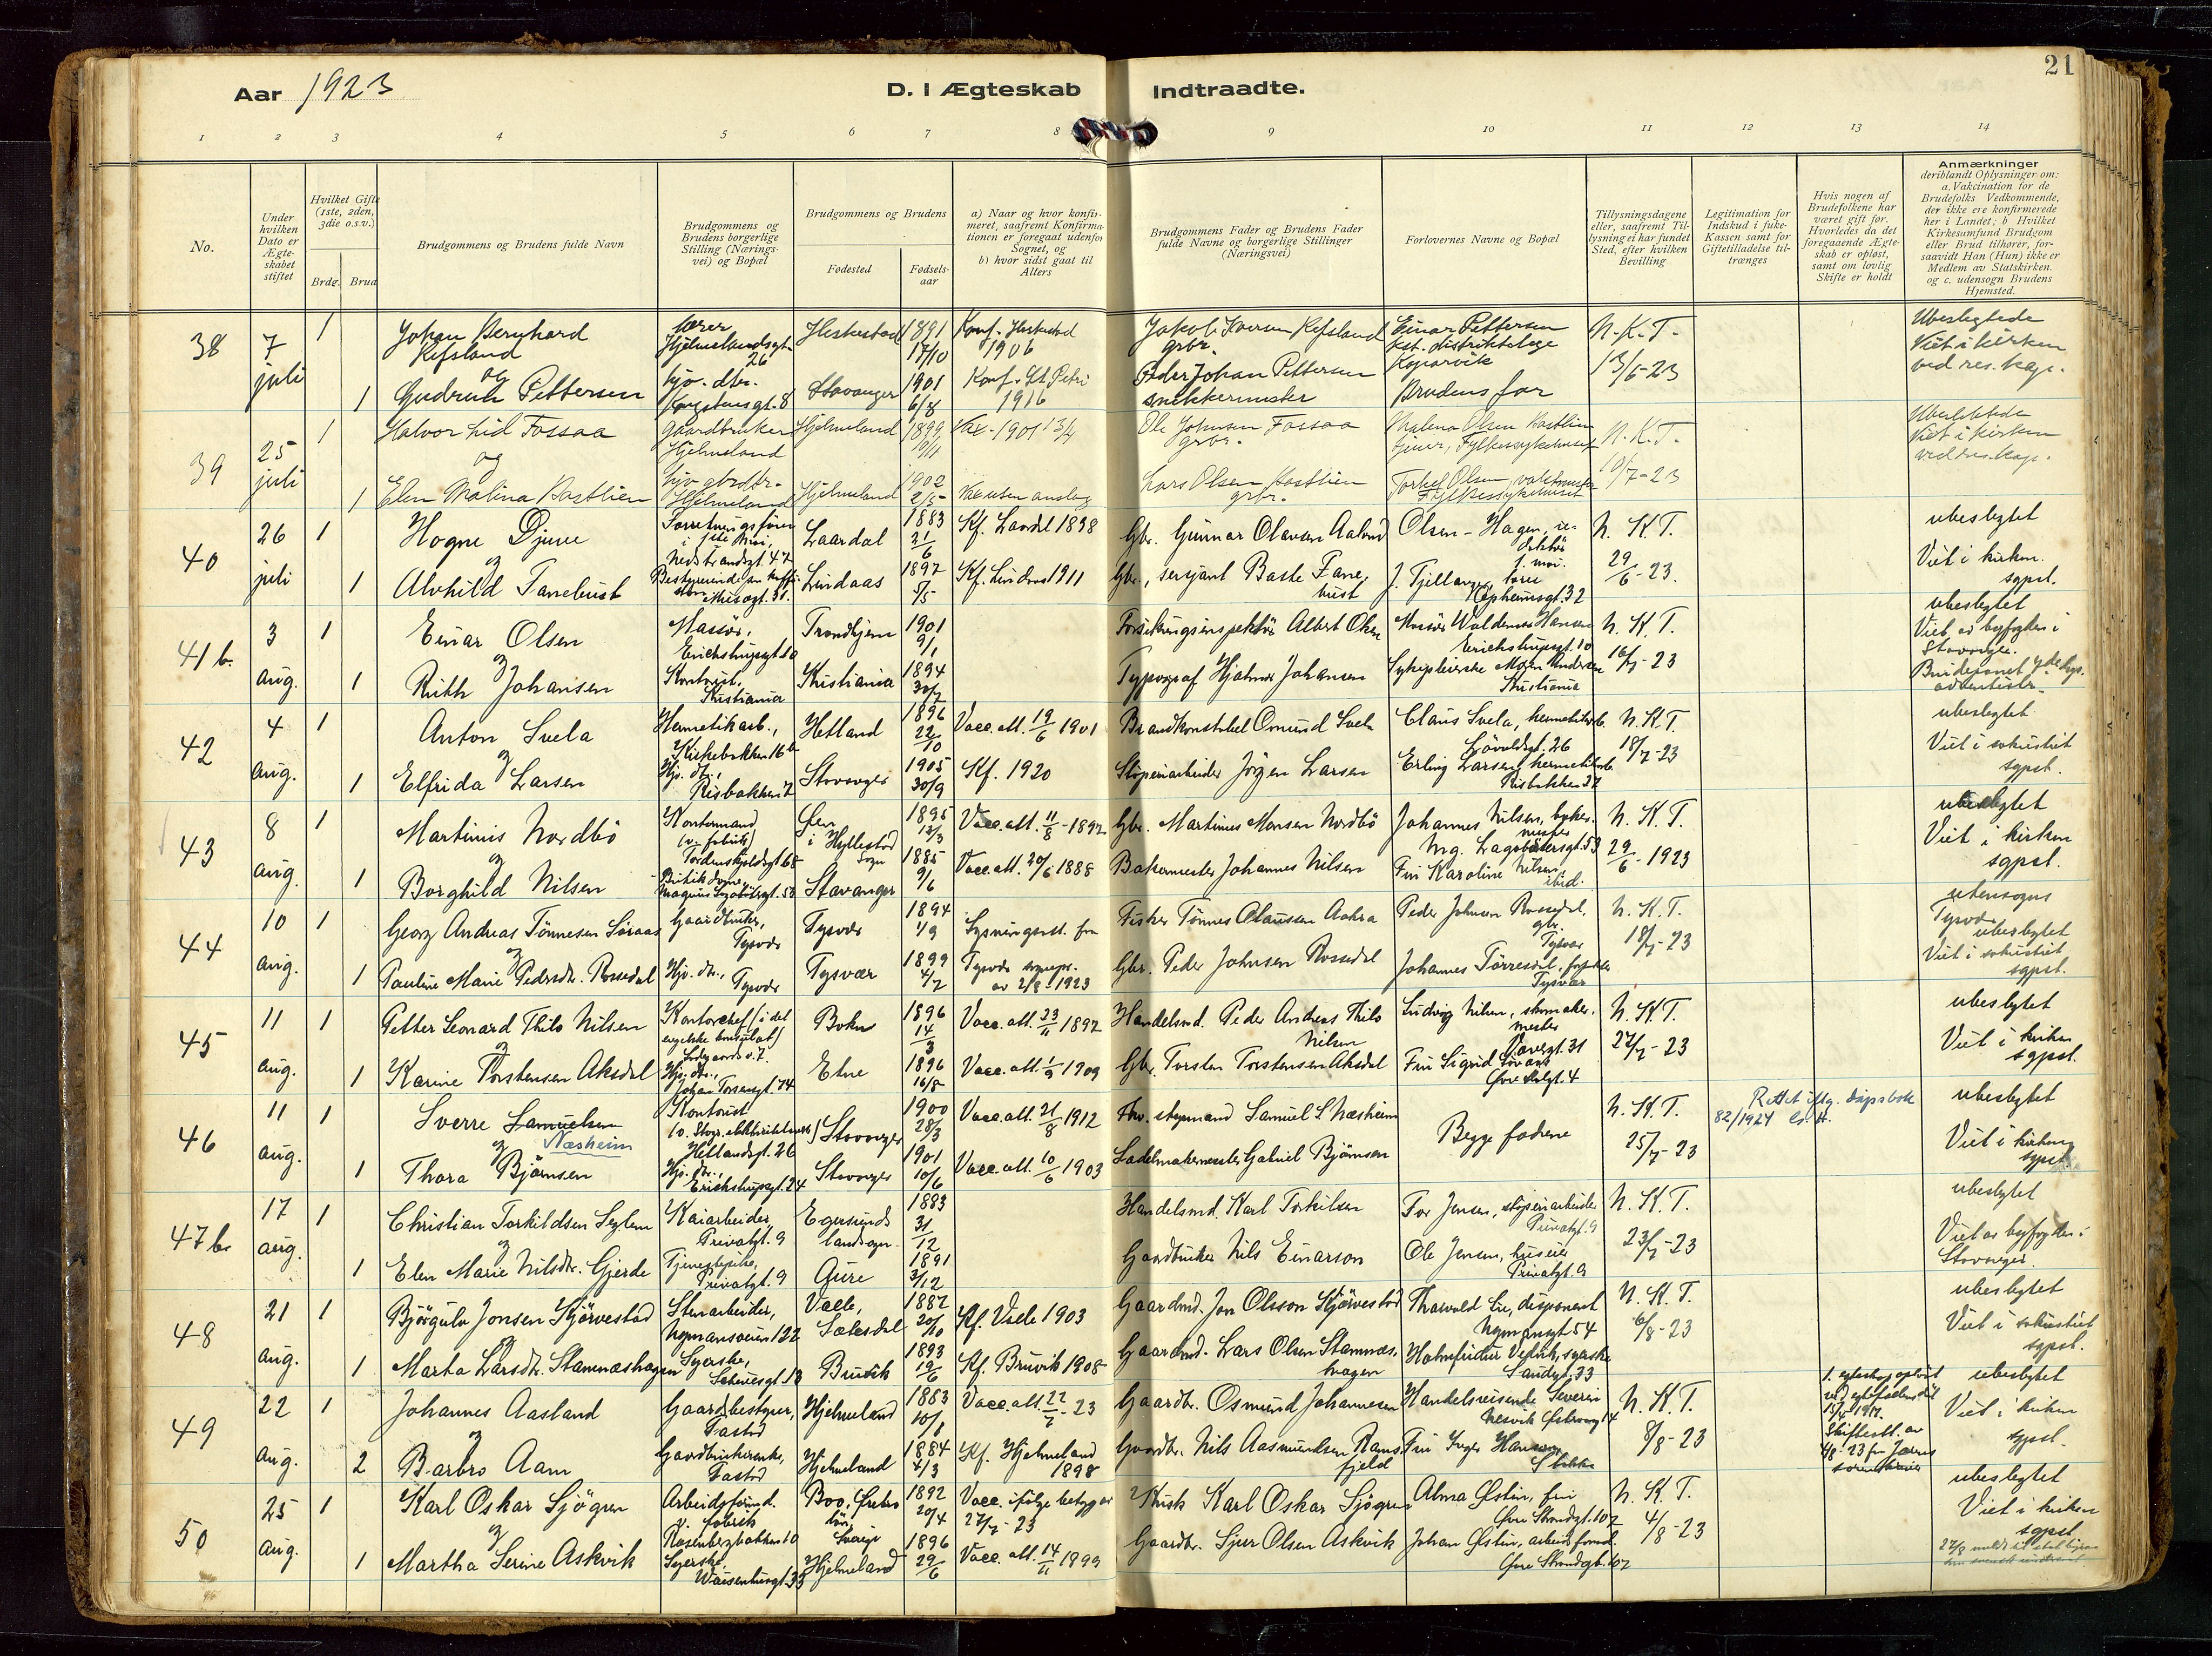 21
Aar 1923
D. I Ægteskab Indtraadte.
1 2 3 4 5 6 7 8 9 10 11 12 13 14
No.
Under hvilken Dato er Ægteskabet stiftet
Hvilket Gifte (1ste, 2den, 3die o.s.v.)
Brdg. Brud
Brudgommens og Brudens fulde Navn
Brudgommens og Brudens borgerlige Stilling (Næringsvei) og Bopæl
Brudgommens og Brudens
Fødested
Fødselsaar
a) Naar og hvor konfirmeret, saafremt Konfirmationen er foregaat udenfor Sognet, og
b) hvor sidst gaat til Alters
Brudgommens Fader og Brudens Fader fulde Navne og borgerlige Stillinger (Næringsvei)
Forlovernes Navne og Bopæl
Tillysningsdagene eller, saafremt Tillysning ei har fundet Sted, efter hvilken Bevilling
Legitimation for Indskud i Enke-Kassen samt for Giftetilladelse tiltrænges
Hvis nogen af Brudefolkene har været gift før. Hvorledes da det foregaaende Ægteskab er opløst, samt om lovlig Skifte er holdt
Anmærkninger
deriblandt Oplysninger om: a. Vakcination for de Brudefolks Vedkommende, der ikke ere konfirmerede her i Landet; b Hvilket Kirkesamfund Brudgom eller Brud tilhører, forsaavidt Han (Hun) ikke er Medlem av Statskirken. og c. udensogn Brudens Hjemsted.
38 7 juli 1 Johan Bernhard Refsland lærer Hjelmelandsgt. 26 Heskestad 1891 17/10 Konf. Heskestad 1906 Jakob Iversen Refsland grbr. Einar Pettersen distriktslæge Kopervik N. K. T. 13/6-23 Ubeslegtede Viet i kirken ved res. kap.
og
1 Gudrun Pettersen hjv. dtr. Kongstensgt. 8 Stavanger 1901 6/8 Konf. St. Petri 1916 Peder Johan Pettersen snekkermester Brudens far
39 25 juli 1 Halvor Lid Fossaa Gaardbruker Hjelmeland 1899 Hjelmeland Ole Johnsen Fossaa grbr. Malena Olsen Fylkessykehuset N. K. T. 10/7-23 Ubeslegtede Viet i kirken ved res. kap.
og
1 Elen Malina Hjelmeland Hjelmeland 1902 2/5 Lars Olsen grbr. Torkel Olsen, Fylkessykehuset
40 26 juli 1 Hogne Djuve Forretningsfører i 1ste Mai, Nedstrandsgt. 47 Laardal 1883 21/6 Kf. Laardal 1898 Gbr. Gunnar Olavsen Olsen-Hagen, redaktør 1. mai. N. K. T. 29/6-23. ubeslegtet Viet i kirken. sgpst.
og
1 Alvhild Fanebust Bestyrerinde Musegt. 31. Lindaas 1897 5/5 Kf. Lindaas 1911 Gbr., sersjant Baste Fanebust J. Tjelland, lærer
41 b. 3 aug. 1 Einar Olsen Massør, Erichstrupsgt. 10 Trondhjem 1901 9/1 Forsikringsinspektør Albert Olsen Massør Waldemar Hansen Erichstrupsgt. 10 N. K. T. 16/7-23 ubeslegtet Viet av byfogden i Stavanger.
og
1 Ruth Johansen Kontorist, Kristiania Kristiania 1894 30/7 Typograf Hjalmar Johansen Sykepleierske Kristiania
42 4 aug. 1 Anton Svela Hermetikarb., Kirkebakken 16 b Hetland 1896 22/10 Vacc. att. 19/6 1901 Brandkonstabel Omund Svela Claus Svela, hermetikarb. Løvoldsgt. 26 N. K. T. 18/7-23 ubeslegtet Viet i sakristiet sgpst.
og
1 Elfrida Larsen Hjv. dtr., Risbakken 7 Stavanger 1905 30/9 Kf. 1920 Støperiarbeider Jørgen Larsen Erling Larsen, hermetikarb. Risbakken
43 8 aug. 1 Martinus Nordbö Kontormand Tordenskjoldsgt. 68 i Hyllestad sogn 1895 12/3 Vacc. att. 11/8-1897 Gbr. Martinus Monsen Nordbö Johannes Nilsen, bakermester Mg. Lagabøtersgt. 53 N. K. T. 29/6-1923 ubeslegtet Viet i kirken sgpst.
og
1 Borghild Nilsen Butikdame, Magnus Lagabøtersgt. 53 Stavanger 1885 9/6 Vacc. att. 20/6 1888 Bakermester Johannes Nilsen Frk. Karoline Nilsen, ibid.
44 10 aug. 1 Georg Andreas Tönnesen Gaardbruker, Tysvær Tysvær 1894 1/9 Lysningsatt. fra Fisker Tönnes Olaussen Peder Johnsen Rossedal, gbr. Tysvær N. K. T. 18/7-23 utensogns Tysvær ubeslegtet Viet i sakristiet sgpst.
og
1 Pauline Marie Pedersdtr. Rossedal Hjv. dtr., Tysvær Tysvær 1899 4/7 Tysvær sognepr. av 2/8 1923 Gbr. Peder Johnsen Rossedal Johannes Tysvær
45 11 aug. 1 Petter Leonard Thilo Nilsen Kontorchef (i det engelske konsulat) Bokn 1896 14/3 Vacc. att. 23/11 1897 Handelsmd. Peder Andreas Thilo Nilsen Ludvig Nilsen, skomakermester N. K. T. 27/7-23 ubeslegtet Viet i kirken sgpst.
og
1 Karine Torstensen Aksdal Hjv. dtr., Johan Torsensgt. 74 Etne 1896 16/8 Vacc. att. 1/9 1909 Gbr. Torsten Torstensen Aksdal Frk. Sigrid
46 11 aug. 1 Sverre Samuelsen Næsheim Kontorist Hetlandsgt. 26 Stavanger 1900 28/3 Vacc. att. 21/8 1912 Fhv. styrmand Samuel S Næsheim Begge fædrene N. K. T. 25/7-23 Rettet iflg. dåpsbok 82/1924 ubeslegtet Viet i kirken sgpst.
og
1 Thora Bjørnsen Hjv. dtr., Erichstrupsgt. 24 Stavanger 1901 10/6 Vacc. att. 10/6 1903 Sadelmakermester Gabriel Bjørnsen
47 b. 17 aug. 1 Christian Torkildsen Seglem Kaiarbeider, Privatgt. 9 Egersunds landsogn 1883 31/12 Handelsmd. Karl Torkilsen Tor Jensen, støperiarbeider Privatgt. 9 N. K. T. 23/7-23 ubeslegtet Viet av byfogden i Stavanger.
og
1 Elen Marie Nilsdtr. Gjerde Tjenestepike, Privatgt. 9 Aure 1891 3/12 Gaardbruker Nils Einarson Ole Jensen, huseier Privatgt. 9
48 21 aug. 1 Björgulv Jonsen Kjörvestad Stenarbeider, Nymansveien 122 Valle, Sætesdal 1887 20/10 Kf. Valle 1903 Gaardmd. Jon Olsson Kjörvestad Tharvald Lie, disponent N. K. T. 6/8-23 ubeslegtet Viet i sakristiet sgpst.
og
1 Marta Larsdtr. Stamneshagen Syerske, Bruvik 1893 19/6 Kf. Bruvik 1908 Gaardmd. Lars Olsen Stamneshagen Sandgt. 33
49 22 aug. 1 Johannes Aasland Gaardsbestyrer, Fastad Hjelmeland 1883 10/1 Vacc. att. 22/7-23 Gaardbr. Osmund Johannesen Handelsreisende Severin N. K. T. 8/8-23 1. egteskap opløst ved egtefællens død Skifteatt. av 4/8-23 fra Jæren sorenskriveri ubeslegtet Viet i kirken sgpst.
og
2 Barbro Aam Gaardbrukerenke, Fastad Hjelmeland 1884 4/3 Kf. Hjelmeland 1898 Gaardbr. Nils Aasmundsen Ramsfjeld Frk. Inger Hansen,
50 25 aug. 1 Karl Oskar Sjögren Arbeidsformd. v. fabrik Rosenbergbakken 10 Boo, Sverige 1892 20/4 Vacc. ifølge 27/7-23 Karl Oskar Sjögren Alma Østin, frk. Øvre Strandgt. 107 N. K. T. 4/8-23 ubeslegtet Viet i kirken sgpst.
og
1 Martha Serine Askvik Syerske, Waisenhusgt. 33 Hjelmeland 1896 29/6 Vacc. att. 14/11 1899 Gaardbr. Sjur Olsen Askvik Johan Østin, arbeidsformd. Øvre Strandgt. 107